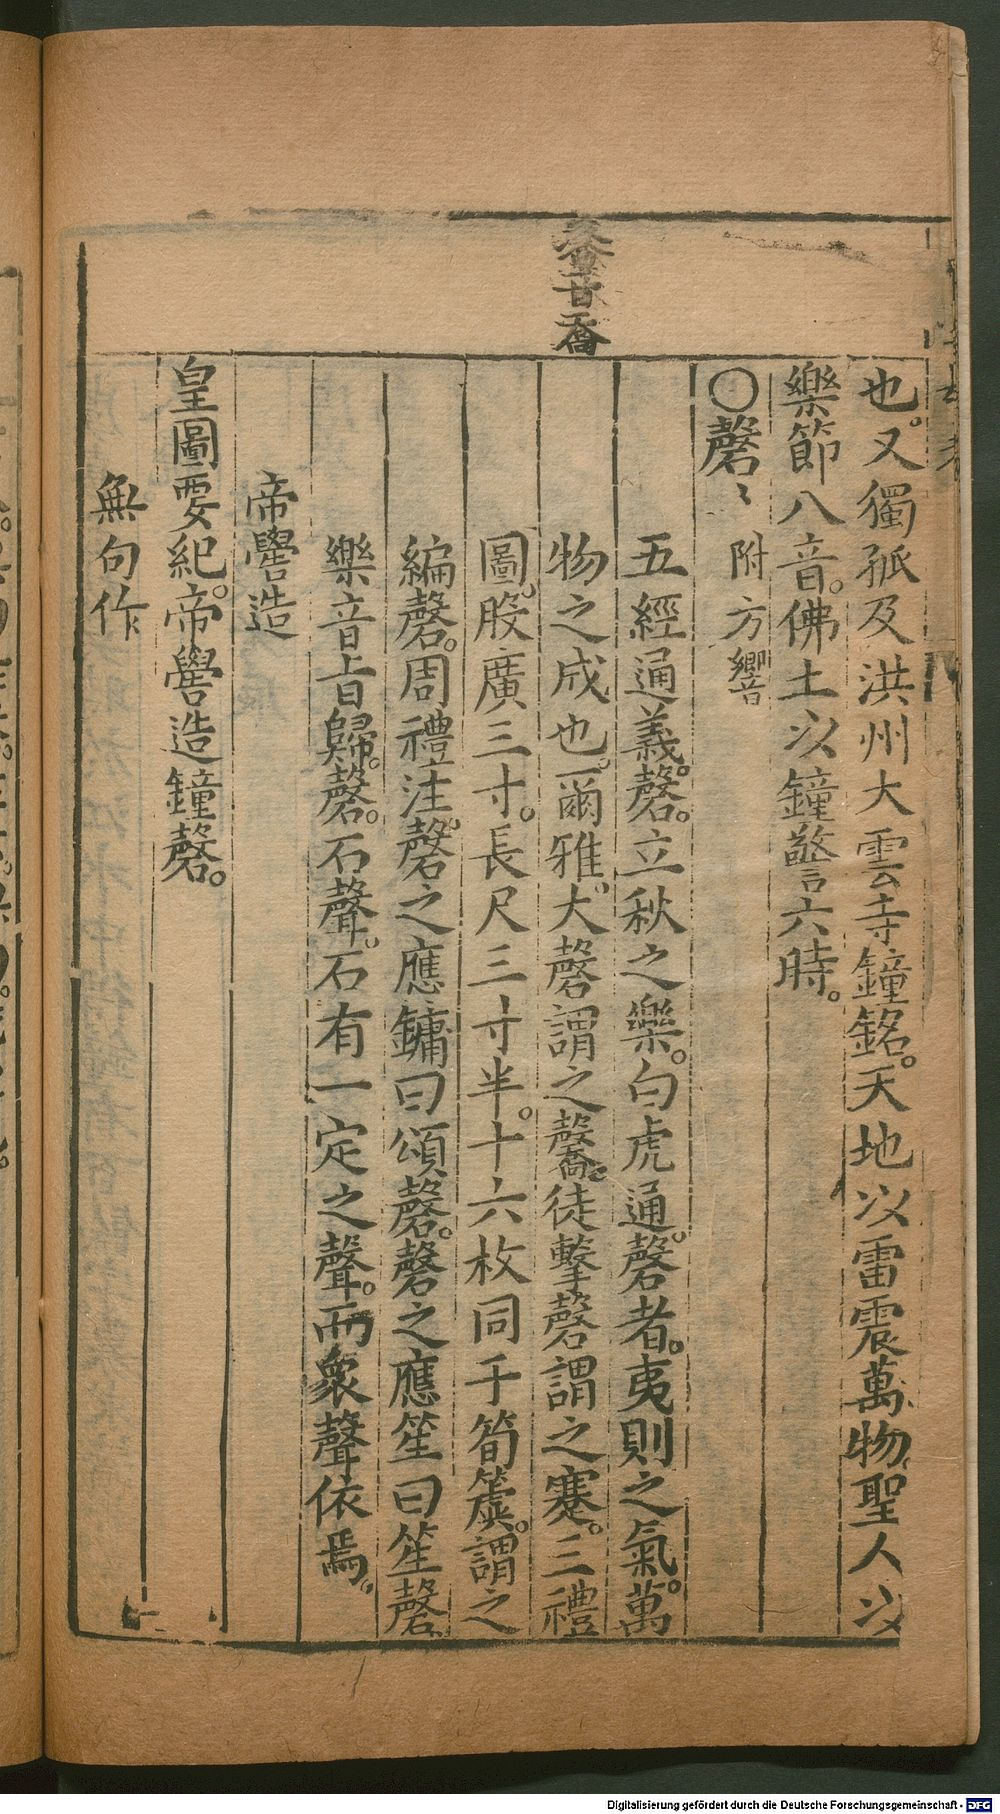 也。又獨孤及洪州大雲寺鐘銘。天地以雷震萬物。聖人以
樂節八音。佛土以鐘警六時。
〇磬 附方響
五經通義。磬。立秋之樂。白虎通。磬者。夷則之氣。萬
物之成也。爾雅。大磬謂之毊。徒擊磬謂之寋。三禮
圖。股廣三寸。長尺三寸半。十六枚同于筍簴。謂之
編磬。周禮注。磬之應鏞曰頌磬。磬之應笙曰笙磬。
樂音皆歸磬。石聲。石有一定之聲。而衆聲依焉。
帝嚳造
皇圖要紀。帝嚳造鐘磬。
無句作
Digitalisierung gefördert durch die Deutsche Forschungsgemeinschaft - DFG